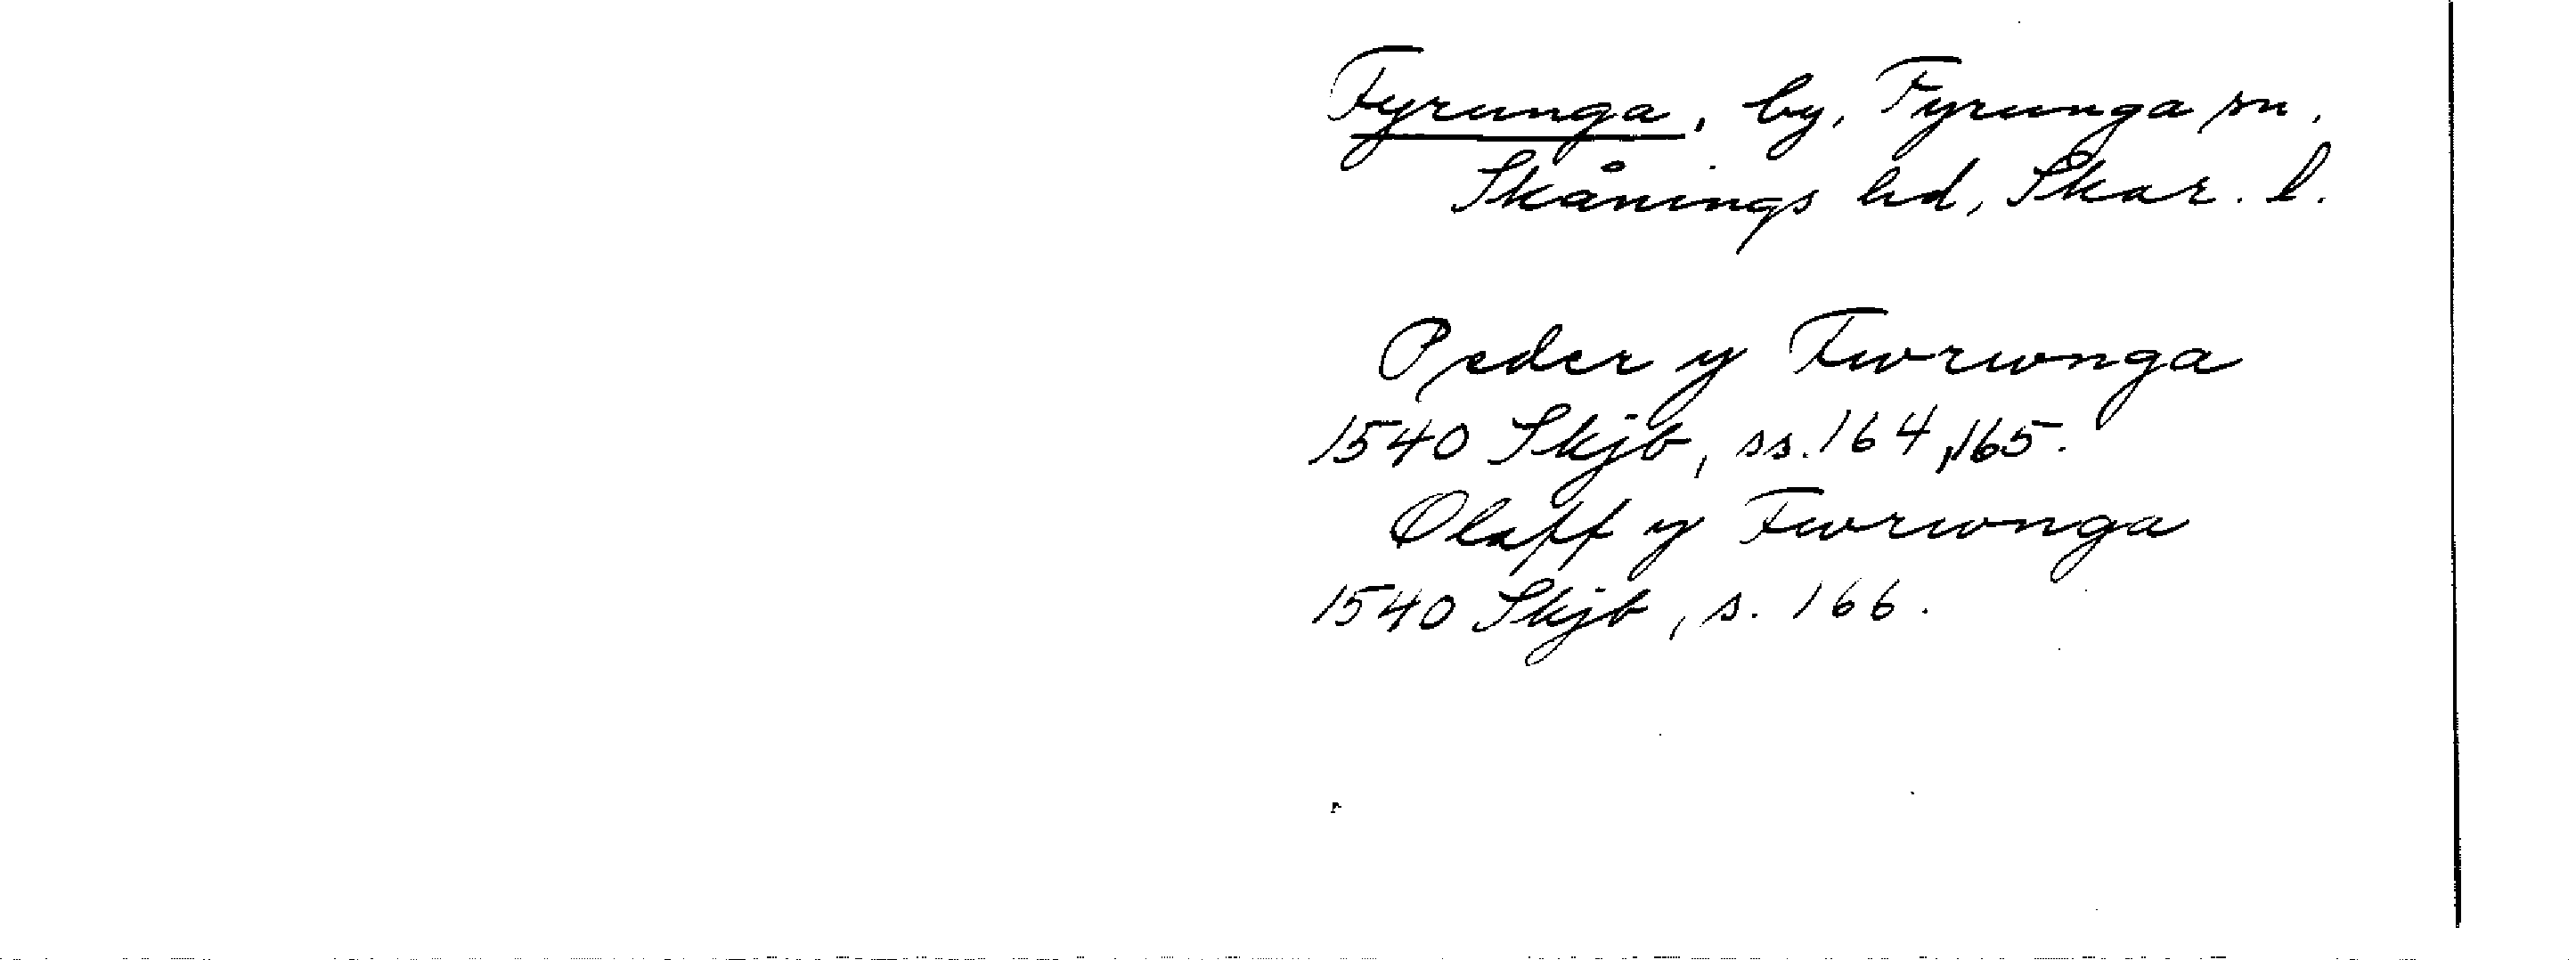 Fyrunga, by, Fyrunga sn.
Skånings hd, Skar. l.
Peder y Fwrwnga
1540 Skjb, ss. 164, 165.
Olaff y Fwrwnga
1540 Skjb, s. 166.